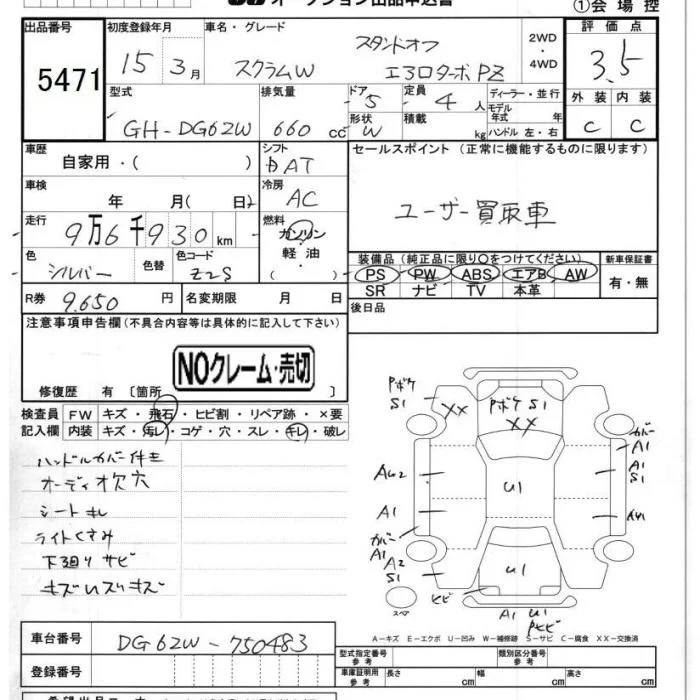 オークション出品申込書
①会場控
出品番号
5471
初度登録年月
15 3月
車名・グレード
スクラムW
スタンドオフ
エアロターボPZ
2WD
・
4WD
評価点
3.5
外装 内装
C C
型式
GH-DG62W
排気量
660 cc
ドア
5
形状
W
定員
4 人
積載
kg
ディーラー・並行
モデル年式 年
ハンドル 左・右
車歴
自家用・( )
シフト
AT
セールスポイント (正常に機能するものに限ります)
ユーザー買取車
車検
年 月( 日)
冷房
AC
走行
9万6千930 km
燃料
ガソリン
軽油
( )
色
シルバー
色替
色コード
Z2S
装備品 (純正品に限り○をつけてください)
PS PW ABS エアB AW
SR ナビ TV 本革
新車保証書
有・無
R券 9.650 円
名変期限 月 日
後日品
注意事項申告欄 (不具合内容等は具体的に記入して下さい)
NOクレーム・売切
修復歴 有 〔箇所 〕
検査員
記入欄
FW キズ・飛石・ヒビ割・リペア跡・×要
内装 キズ・汚レ・コゲ・穴・スレ・キレ・破レ
ハンドルカバー付キ
オーディオ欠穴
シートキレ
ライトくすみ
下廻りサビ
キズUスリキズ
Pボケ
S1
XX
Pボケ S1
XX
カバー
A1
A1
S1
A1
U1
カバー
A1
A2
S1
U1
ヒビ
スペア
A1 U1
A-キズ E-エクボ U-凹み W-補修跡 S-サビ C-腐食 XX-交換済
車台番号
DG62W-750483
登録番号
型式指定番号
参考
類別区分番号
参考
車庫証明用
参考
長さ cm
幅 cm
高さ cm